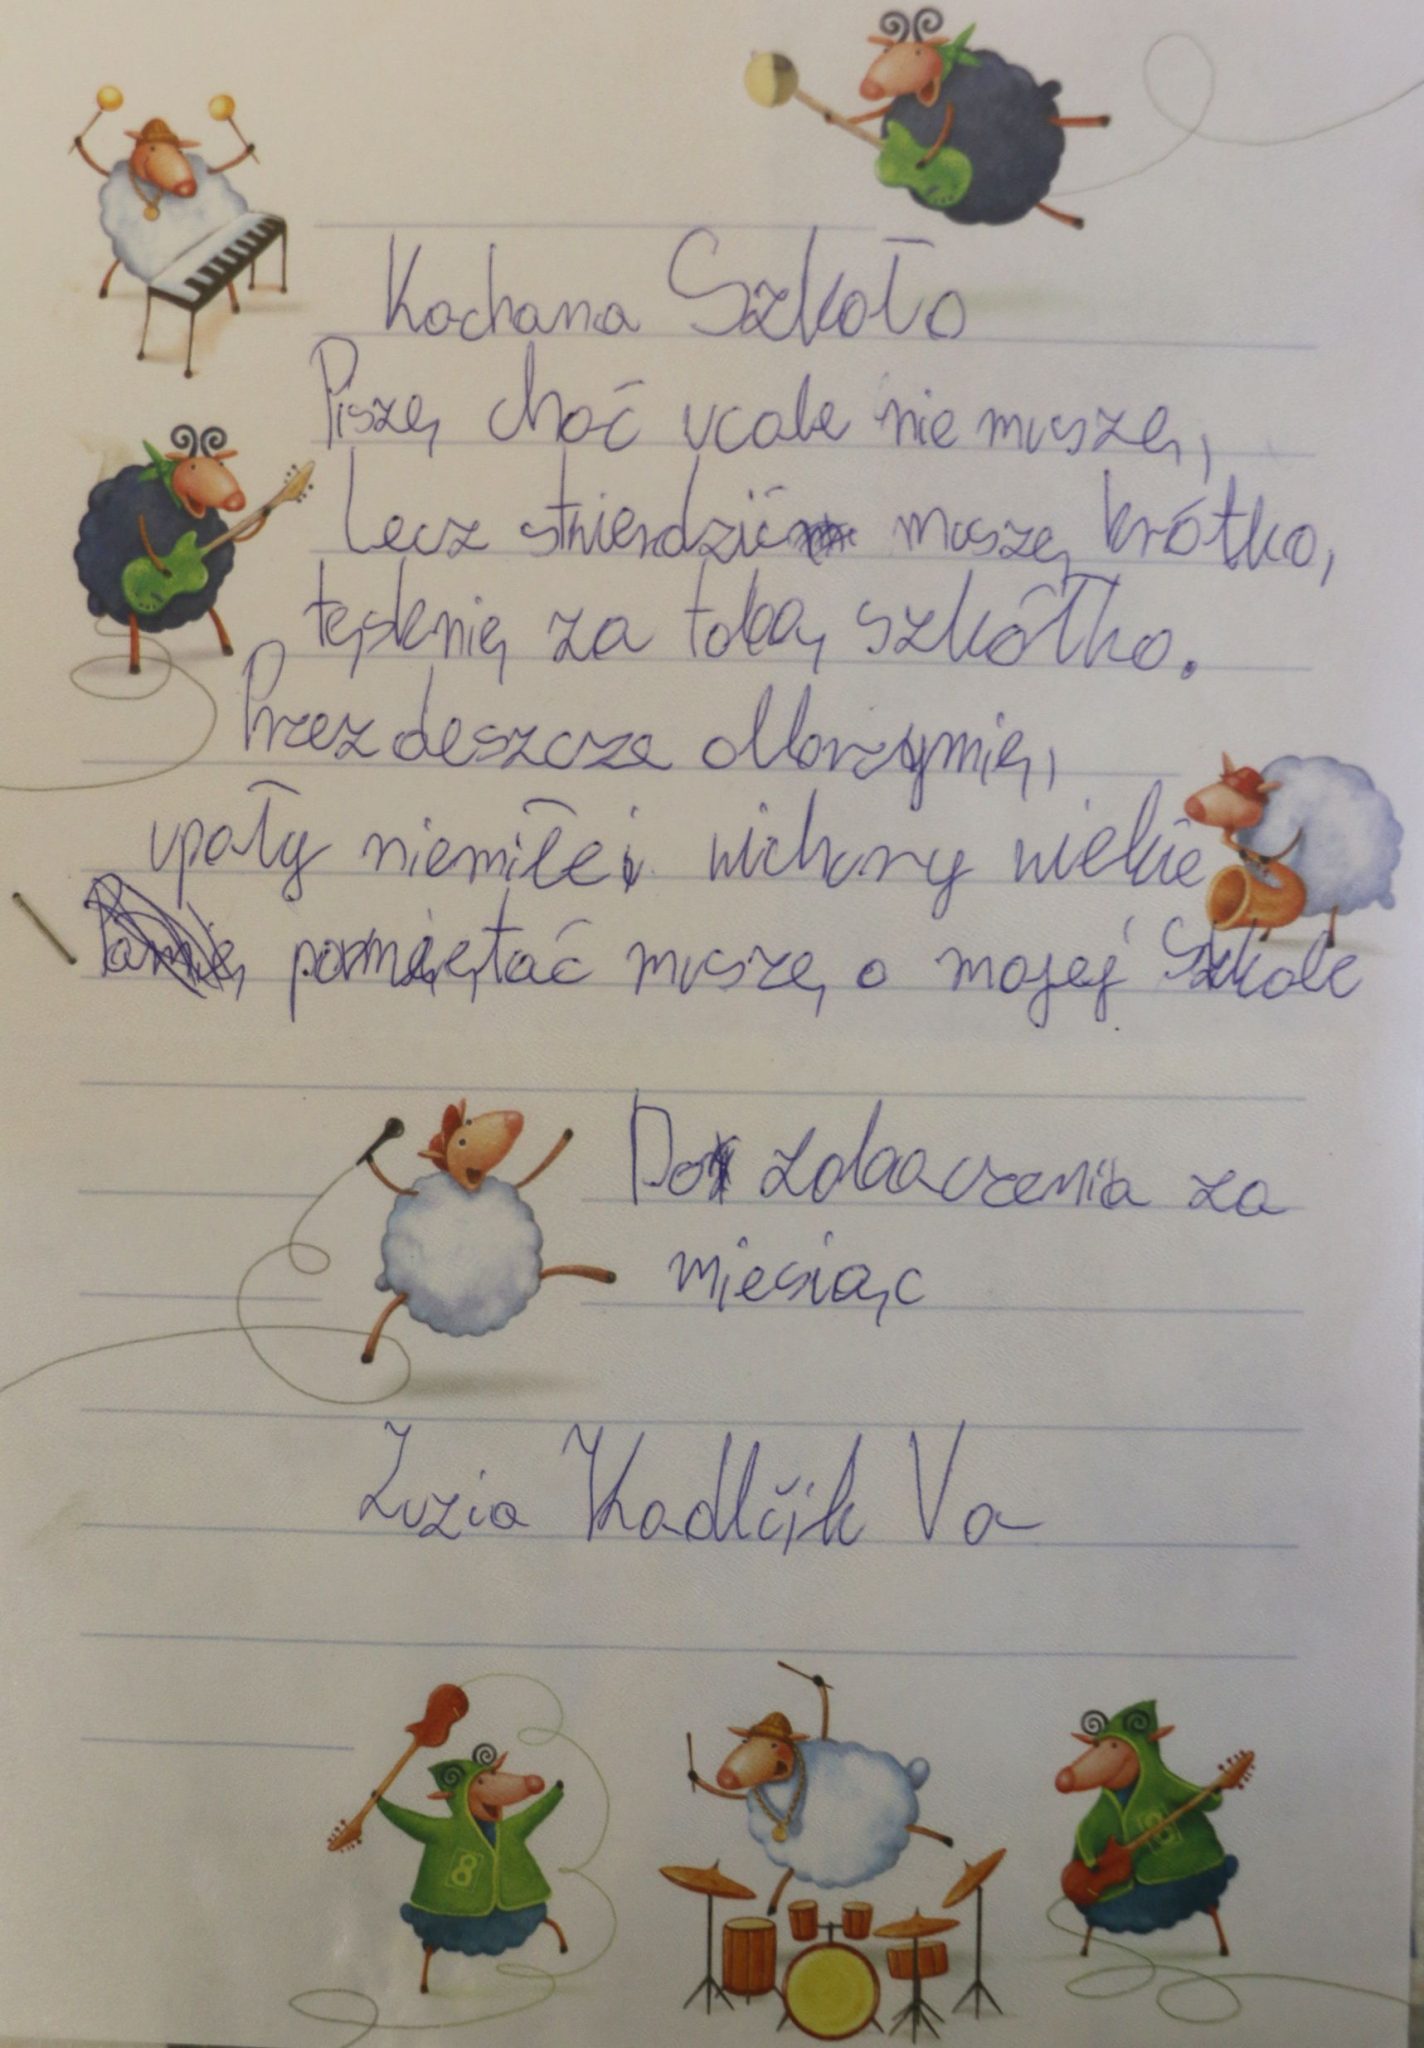 Kochana Szkoło
Piszę choć wcale nie muszę,
Lecz stwierdzić muszę krótko,
tęsknię za tobą szkółko.
Przez deszcze olbrzymie,
upały niemiłe i wichory wielkie
pamiętać muszę o mojej Szkole
Do zobaczenia za
miesiąc
Zuzia Kadlčik Va
8
8